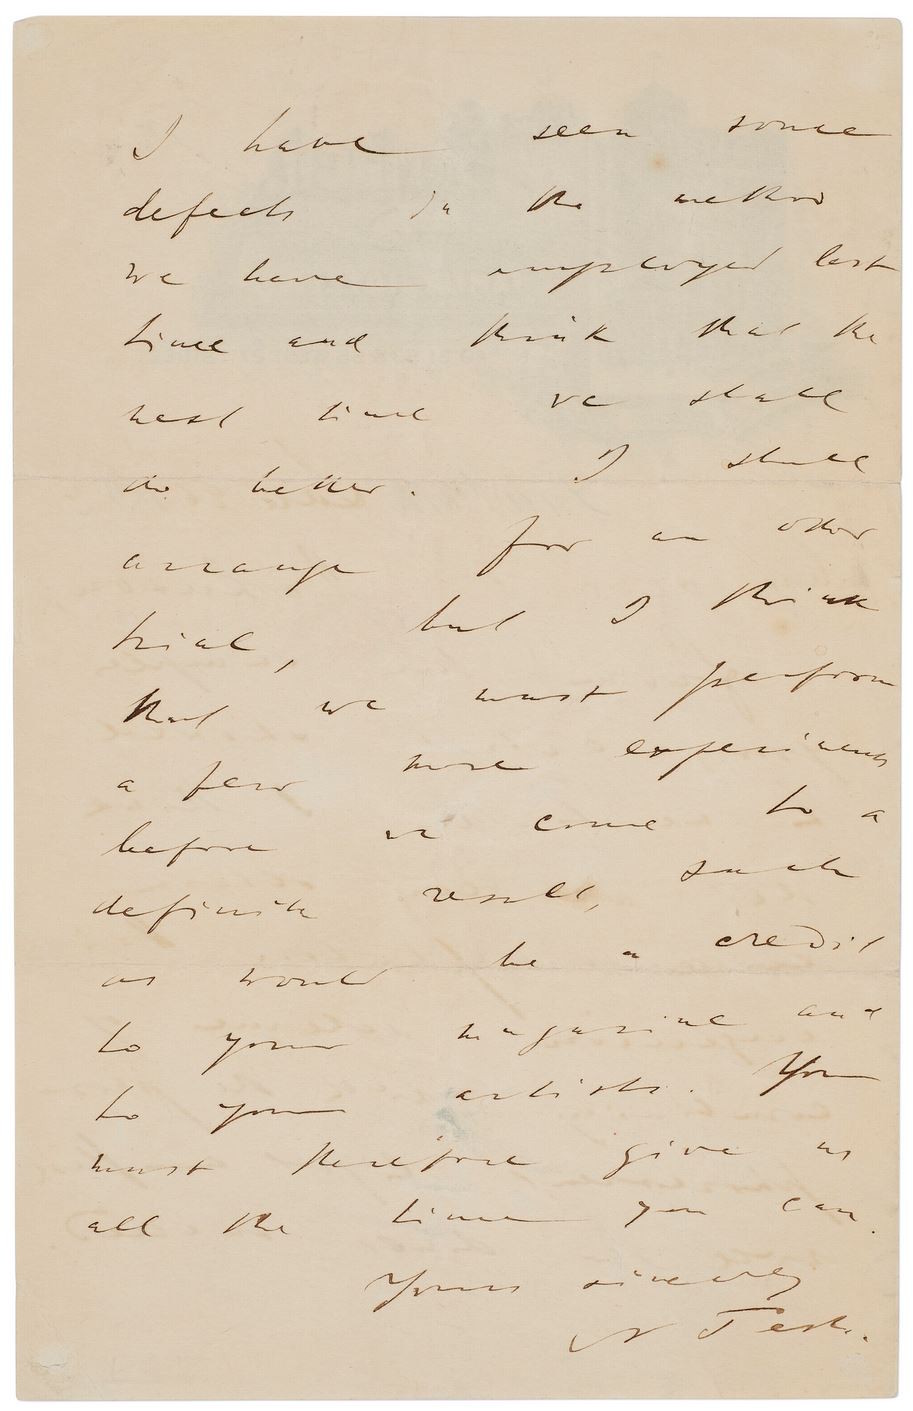 I have seen some
defects in the method
we have employed last
time and think that the
next time we shall
do better. I shall
arrange for an other
trial, but I think
that we must perform
a few more experiments
before we come to a
definite result, such
as would be a credit
to your magazine and
to your artists. You
must therefore give us
all the time you can.
Yours sincerely
N Tesla.